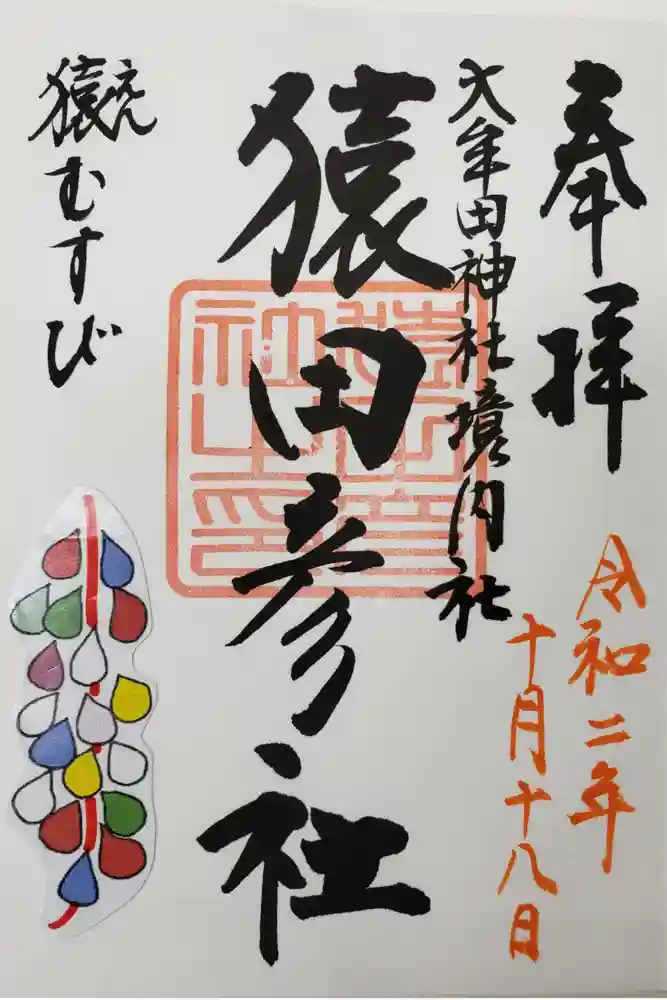 奉拝
令和二年
十月十八日
大牟田神社境内社
猿田彦社
猿田彦社之印
猿えん
むすび